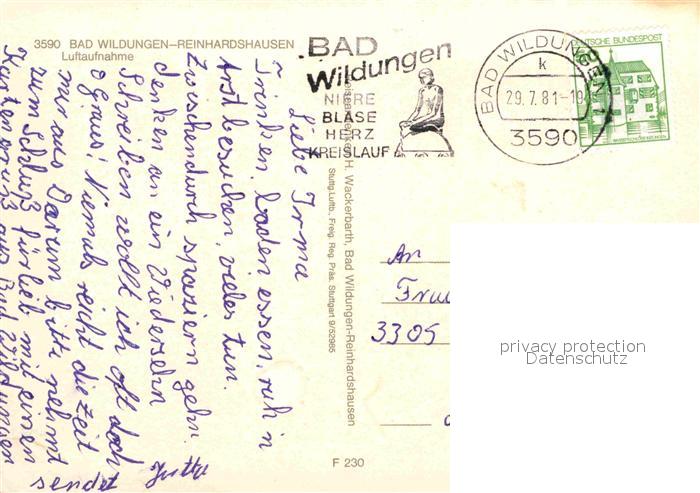 3590 BAD WILDUNGEN–REINHARDSHAUSEN
Luftaufnahme
BAD
Wildungen
NIERE
BLASE
HERZ
KREISLAUF
BAD WILDUNGEN 1
k
29.7.81-19
3590
DEUTSCHE BUNDESPOST
Liebe Irma
Trinken, baden essen, ruh'n
Arzt besuchen, vieles tun.
Zwischendurch spaziern gehn
denken an ein Wiedersehn
Schreiben wollt ich oft doch
o graus! Niemals reicht die Zeit
mir aus Darum bitte nehmt
zum Schluß für lieb mit einen
Kartengruß aus Bad Wildungen
sendet Jutta
H. Wackerbarth, Bad Wildungen-Reinhardshausen
Stuttg. Luftb., Freig. Reg. Präs. Stuttgart 9/52985
An
Frau
3305
F 230
privacy protection
Datenschutz